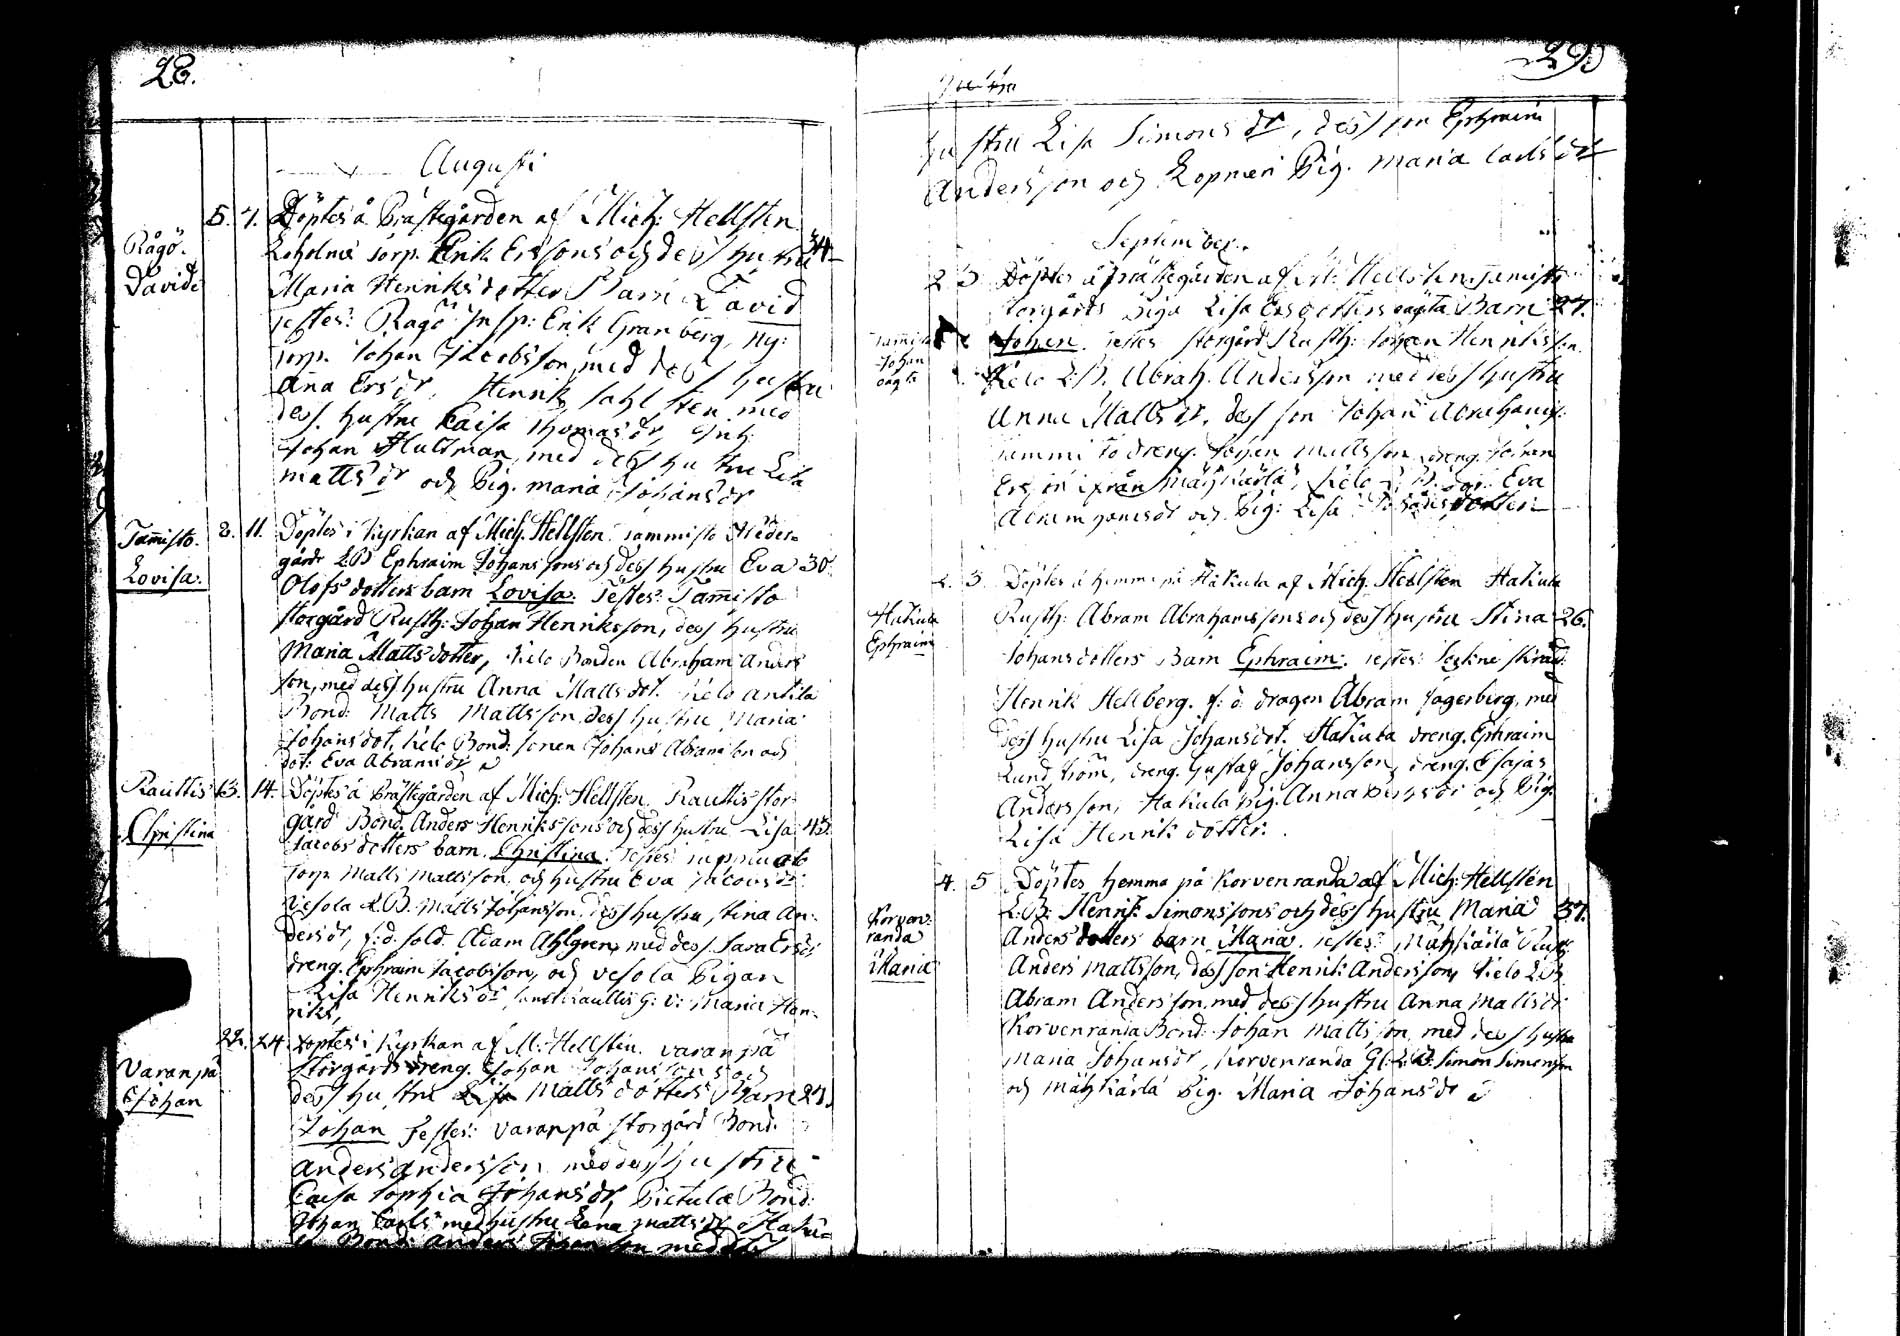 28.
Augusti
Rågö.
David
5. 7. Döptes å Prästegården af Mich: Hellsten
Loholma torp. Erik Erssons och dess hustru 34
Maria Henriksdotter Barn David
testes: Rågö Insp: Erik Granberg, Ny:
torp. Johan Jacobsson, med dess hustru
Ana Ersdr, Henrik Sahlsten med
dess hustru Caisa Thomasdr, Inh:
Johan Hultman, med dess hustru Lisa
Mattsdr och Pig. Maria Johansdr
Tam̄isto.
Lovisa.
8. 11. Döptes i Kyrkan af Mich. Hellsten Tammisto Neder-
gårds L:B Ephraim Johanssons och dess hustru Eva 30.
Olofsdotters barn Lovisa. Testes: Tam̄isto
Storgård Rusth: Johan Henriksson, dess hustru
Maria Mattsdotter, Kelo Bonden Abraham Anders
son, med dess hustru Anna Mattsdot. Kelo Antila
Bond: Matts Mattsson, dess hustru Maria
Johansdot, Kelo Bond: sonen Johans Abramson och
dot: Eva Abramsdr
Rauttis
Christina
13. 14. Döptes å Prästegården af Mich: Hellsten. Rauttis Stor
gård Bond. Anders Henrikssons och dess hustru Lisa 43.
Jacobsdotters barn. Christina. Testes:
Torp. Matts Mattsson, och hustru Eva Jacobsdr
Vesola L.B. Matts Johansson, dess hustru Stina An-
dersdr, f:d. sold. Adam Ahlgren, med dess Sara Ersdr
dreng. Ephraim Jacobsson, och Vesola Pigan
Lisa Henriksdr Rauttis G: V: Maria Hen-
riks,
Varanpä
Johan
22. 24. Döptes i Kyrkan af M: Hellsten. Varanpä
Storgårds dreng. Johan Johanssons och
dess hustru Lisa Mattsdotters Barn 27.
Johan Testes: Varanpä Storgård Bond.
Anders Andersson med dess hustru
Caisa Sophia Johansdr, Pietula Bond:
Johan Carls med hustru Lena Mattsdr Haku-
la Bond: Anders Johansson med dess
29.
hustru Lisa Simonsdr, dess son Ephraim
Andersson och Pig. Maria Carlsdr
September.
Tam̄isto
Johan
oägta
2 3 Döptes å Prästegården af M: Hellsten, Tam̄isto
Storgårds Piga Lisa Ersdotters oägta Barn 27.
Johan. Testes Storgård Rusth: Johan Henriksson.
Kelo L:B. Abrah. Andersson med dess hustru
Anna Mattsdr, dess son Johan Abrahams:
Tammisto dreng. Johan Mattsson, dreng. Johan
Ersson ifrån Mähkärlä, Kelo L: B. dot. Eva
Abramsdr och Pig: Lisa Johansdotter
Hakula
Ephraim
2. 3. Döptes hemma på Hakula af Mich. Hellsten Hakula
Rusth: Abram Abrahamssons och dess hustru Stina 26.
Johansdotters Barn Ephraim. testes: Sockne skräd:
Henrik Hellberg. f: d: dragon Abram Fagerberg, med
dess hustru Lisa Johansdot. Hakula dreng. Ephraim
Lundström, dreng. Gustaf Johansson, dreng. Esajas
Andersson, Hakula Pig. Anna och Pig.
Lisa Henriksdotter.
Korven-
randa
Maria
4. 5 Döptes hemma på Korvenranda af Mich: Hellsten
L:B: Henrik Simonssons och dess hustru Maria 37.
Andersdotters barn Maria. testes: Mähkärlä Rusth.
Anders Mattsson, dess son Henrik Andersson, Kelo L:B.
Abram Andersson, med dess hustru Anna Mattsdr
Korvenranda Bond: Johan Mattsson med dess hustru
Maria Johansdr, Korvenranda Gl: L.B: Simon Simonsson
och Mähkärlä Pig. Maria Johansdr